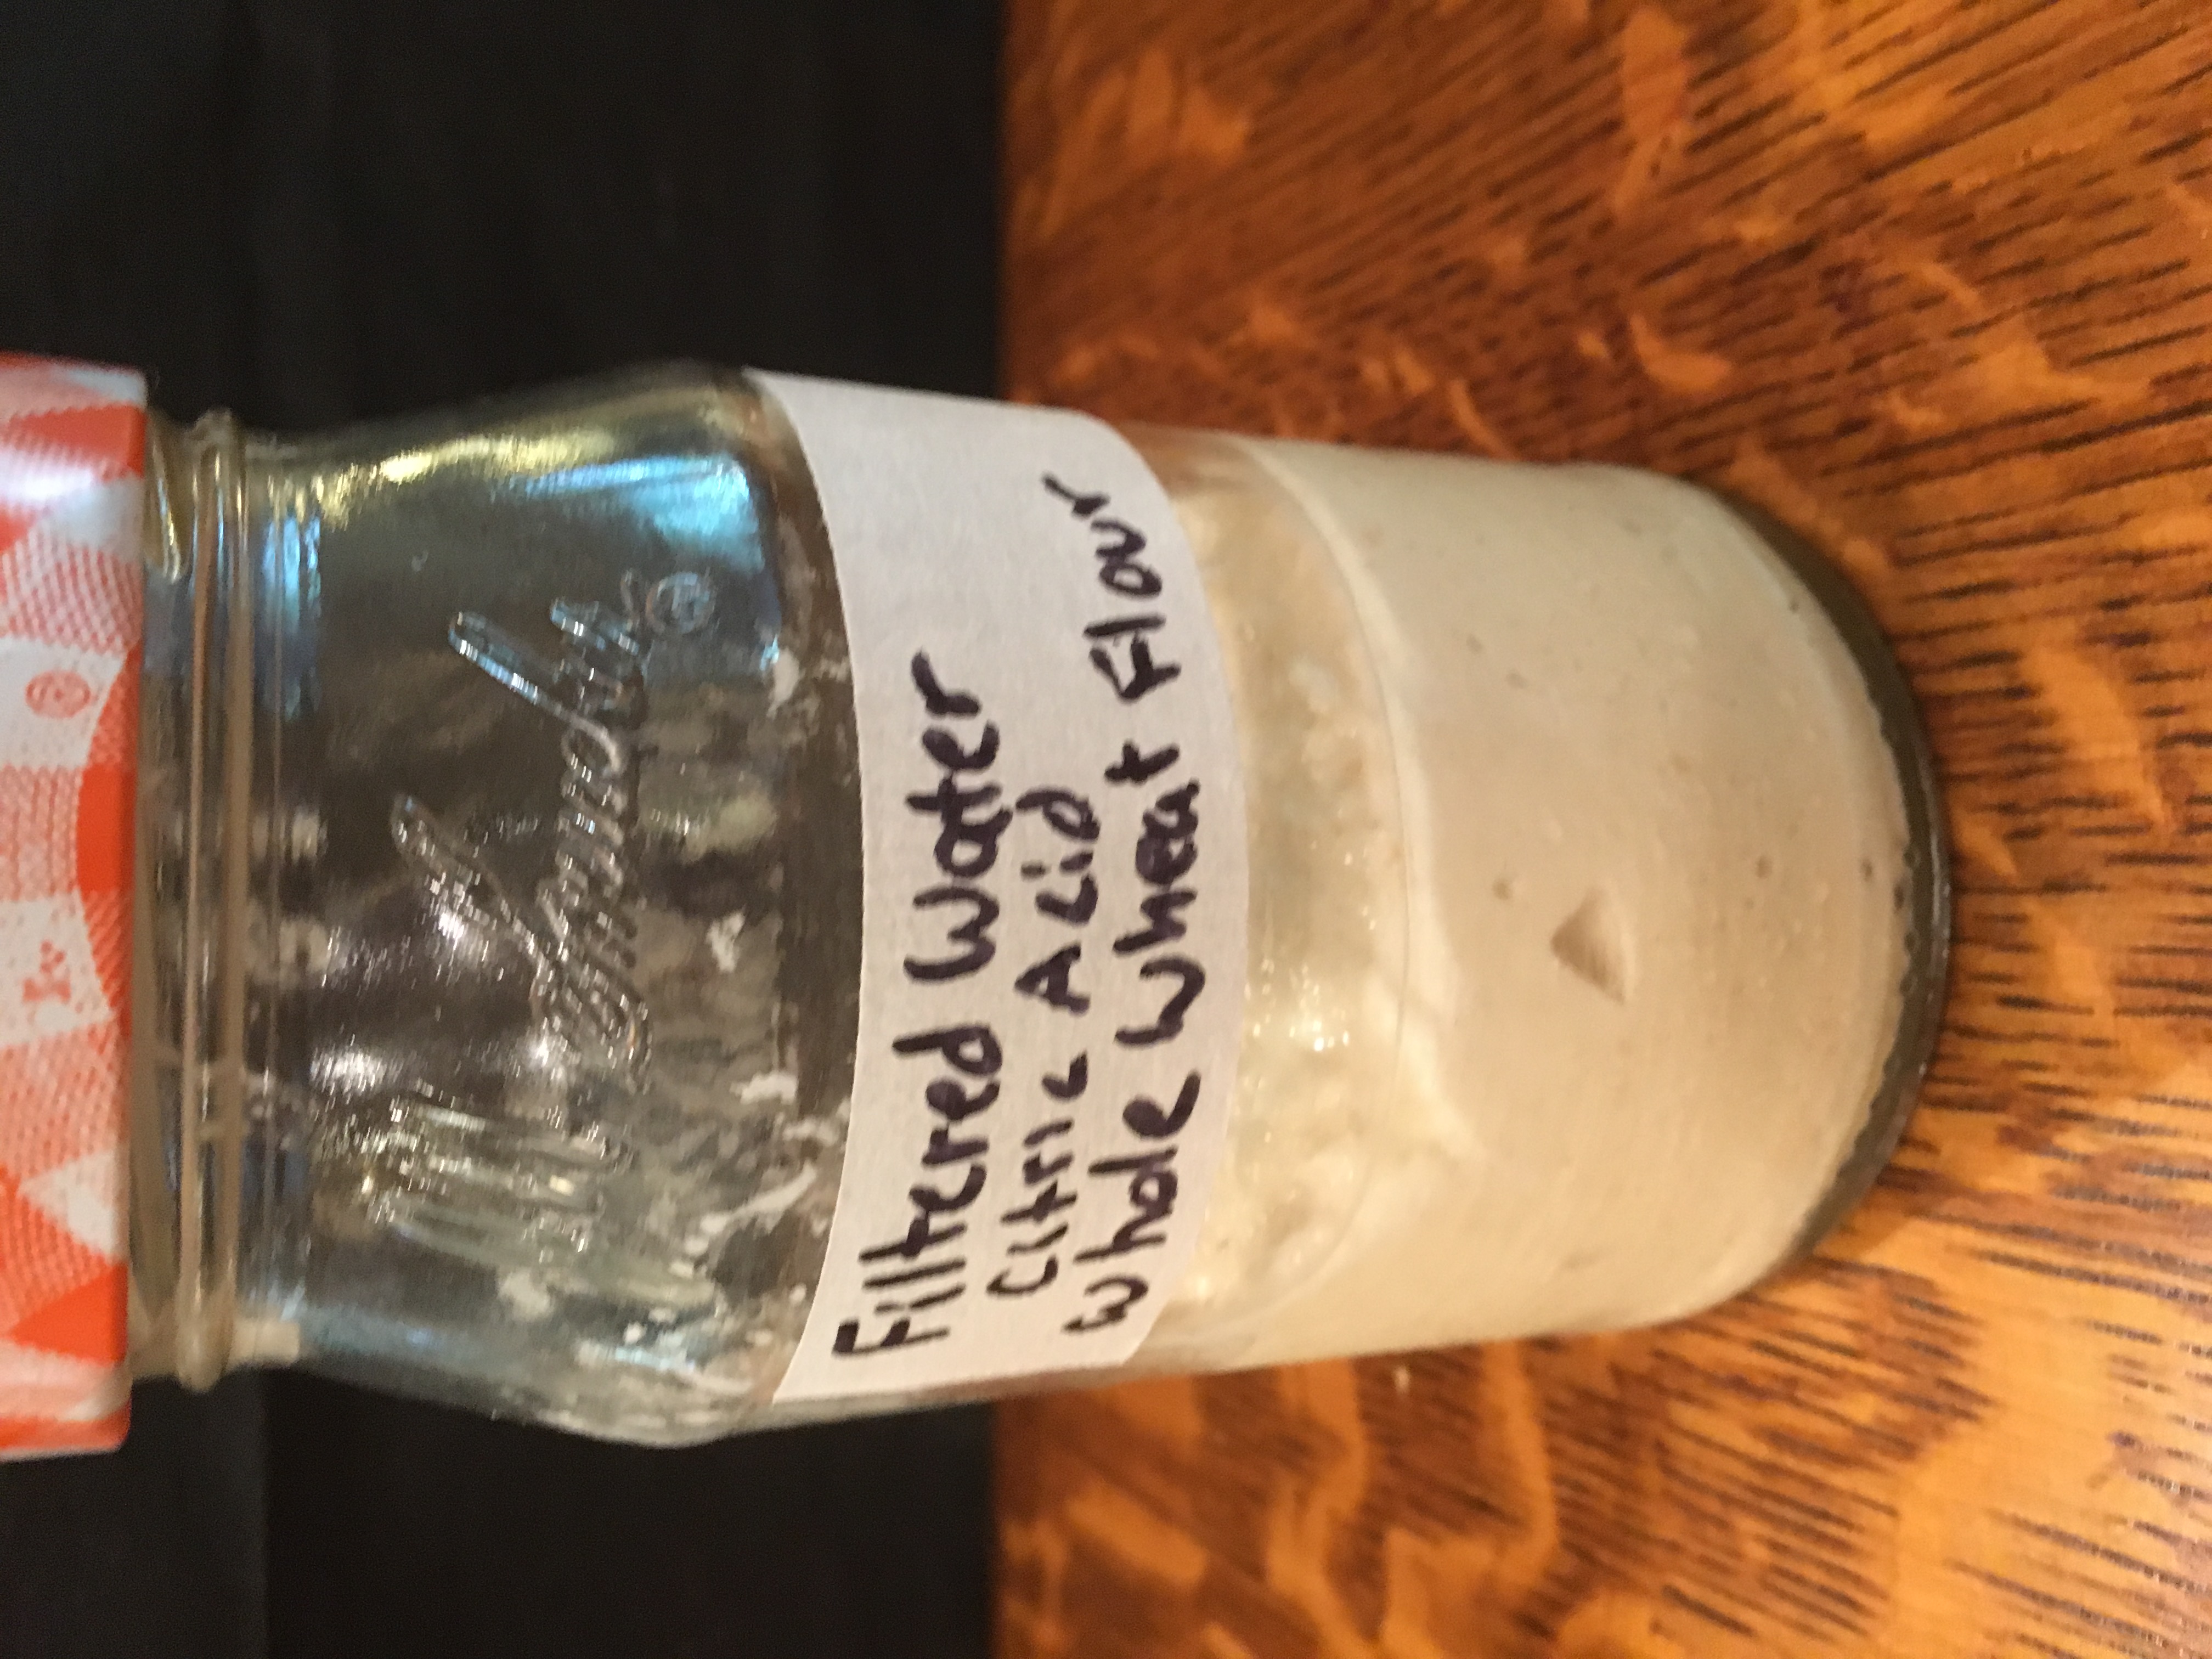 Filtered Water
Citric Acid
Whole Wheat Flour